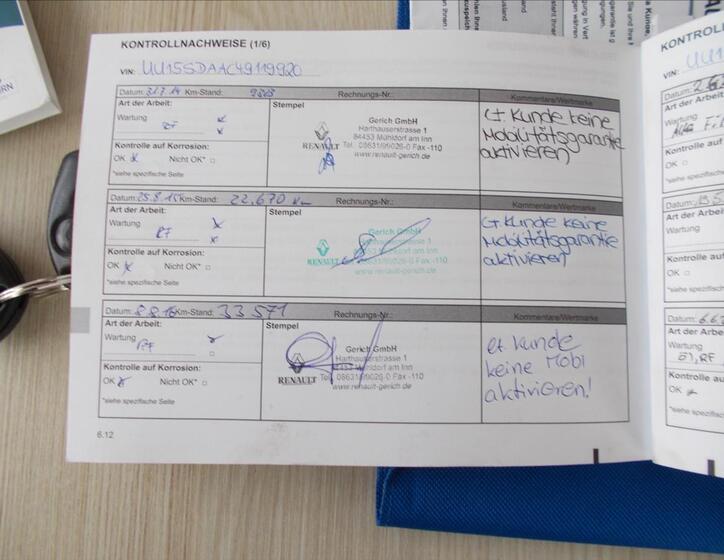 KONTROLLNACHWEISE (1/6)
VIN: UU15SDAAC49119920
Datum: 31.7.14 Km-Stand: Rechnungs-Nr.: Kommentare/Wertmarke
Art der Arbeit: Stempel
Wartung
RF
Kontrolle auf Korrosion:
OK x Nicht OK* □
*siehe spezifische Seite
Gerich GmbH
Harthauserstrasse 1
84453 Mühldorf am Inn
Tel. 08631/99026-0 Fax -110
www.renault-gerich.de
RENAULT
Lt Kunde keine
Mobilitätsgarantie
aktivieren
Datum: 25.8.15 Km-Stand: 22.670 km Rechnungs-Nr.: Kommentare/Wertmarke
Art der Arbeit: Stempel
Wartung
RF
Kontrolle auf Korrosion:
OK x Nicht OK* □
*siehe spezifische Seite
Gerich GmbH
Harthauserstrasse 1
84453 Mühldorf am Inn
08631/99026-0 Fax -110
www.renault-gerich.de
RENAULT
Lt. Kunde keine
Mobilitätsgarantie
aktivieren
Datum: 8.8.16 Km-Stand: 33571 Rechnungs-Nr.: Kommentare/Wertmarke
Art der Arbeit: Stempel
Wartung
RF
Kontrolle auf Korrosion:
OK x Nicht OK* □
*siehe spezifische Seite
Gerich GmbH
Harthauserstrasse 1
84453 Mühldorf am Inn
Tel. 08631/99026-0 Fax -110
www.renault-gerich.de
RENAULT
Lt Kunde
keine Mobi
aktivieren!
6.12
KONTROLL
VIN:
Datum:
Art der Arbeit:
Wartung
Kontrolle auf
OK
*siehe spezifische
Datum:
Art der Arbeit
Wartung
Kontrolle auf
OK
*siehe spezifische
Datum: 6.6.
Art der Arbei
Wartung
Öl, RF
Kontrolle auf
OK
*siehe spezifisch